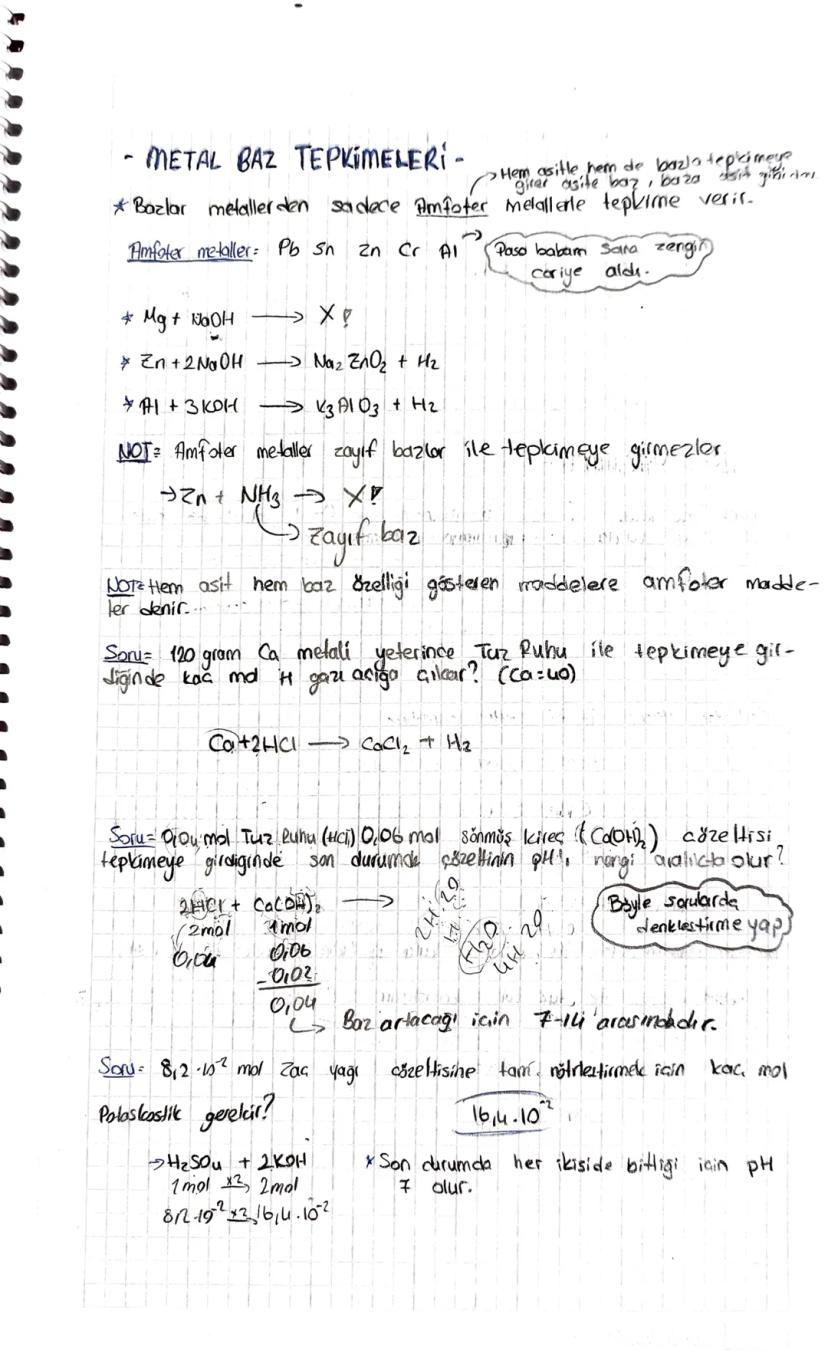 - METAL BAZ TEPKİMELERİ -
Hem asitle hem de bazla tepkimeye
girer asite baz, baza asit gibi
* Bazlar metallerden sadece Amfoter metallerle tepkime verir.
Amfoter metaller= Pb Sn Zn Cr Al
Paşa babam Sana zengin
cariye aldı.
* Mg + NaOH → X!
* Zn + 2NaOH → Na2ZnO2 + H2
* Al + 3KOH → K3AlO3 + H2
NOT= Amfoter metaller zayıf bazlar ile tepkimeye girmezler
→ Zn + NH3 → X!
Zayıf baz
NOT= Hem asit hem baz özelliği gösteren maddelere amfoter madde-
ler denir.
Soru= 120 gram Ca metali yeterince Tuz Ruhu ile tepkimeye gir-
diğinde kaç mol H gazı açığa çıkar? (Ca=40)
Ca+2HCl → CaCl2 + H2
Soru= 0,04 mol Tuz Ruhu (HCl) 0,06 mol sönmüş kireç (Ca(OH)2) çözeltisi
tepkimeye girdiginde son durumda çözeltinin pH'ı hangi aralıkta olur?
2HCl + Ca(OH)2 →
2mol 1mol
0,04 0,06
-0,02
0,04
2H 2O
H2O
4H 2O
Böyle sorularda
denkleştirme yap
Baz artacağı için 7-14 arasındadır.
Soru= 8,2 .10-2 mol Zaç yağı çözeltisine tam nötrleştirmek için kaç mol
Potaskostik gerekir?
16,4.10-2
→ H2SO4 + 2KOH
1mol x2 2mol
8,2.10-2 x2 16,4.10-2
* Son durumda her ikiside bittiği için pH
7 olur.